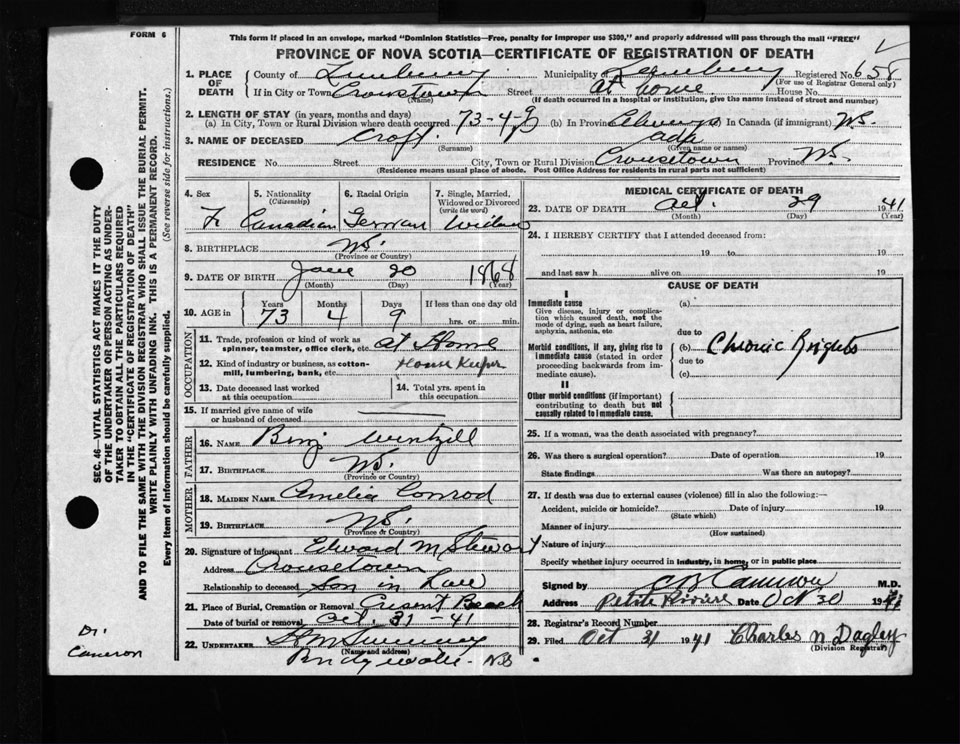 FORM 6
This form if placed in an envelope, marked "Dominion Statistics—Free, penalty for improper use $300," and properly addressed will pass through the mail "FREE"
PROVINCE OF NOVA SCOTIA—CERTIFICATE OF REGISTRATION OF DEATH
1. PLACE OF DEATH County of Lunenburg Municipality of Lunenburg Registered No. 658
(For use of Registrar General only)
If in City or Town Crousetown Street at home House No.
(Name) (If death occurred in a hospital or institution, give the name instead of street and number)
2. LENGTH OF STAY (in years, months and days)
(a) In City, Town or Rural Division where death occurred 73-4-9 (b) In Province Always In Canada (if immigrant) N.S.
3. NAME OF DECEASED Croft Ada
(Surname) (Given name or names)
RESIDENCE No. Street City, Town or Rural Division Crousetown Province N.S.
(Residence means usual place of abode. Post Office Address for residents in rural parts not sufficient)
SEC. 46—VITAL STATISTICS ACT MAKES IT THE DUTY
OF THE UNDERTAKER OR PERSON ACTING AS UNDER-
TAKER TO OBTAIN ALL THE PARTICULARS REQUIRED
IN THE "CERTIFICATE OF REGISTRATION OF DEATH"
AND TO FILE THE SAME WITH THE DIVISION REGISTRAR WHO SHALL ISSUE THE BURIAL PERMIT.
WRITE PLAINLY WITH UNFADING INK. THIS IS A PERMANENT RECORD.
Every item of Information should be carefully supplied. (See reverse side for instructions.)
4. Sex 5. Nationality (Citizenship) 6. Racial Origin 7. Single, Married, Widowed or Divorced (write the word)
F. Canadian German Widow
8. BIRTHPLACE N.S.
(Province or Country)
9. DATE OF BIRTH June 20 1868
(Month) (Day) (Year)
10. AGE in Years Months Days If less than one day old
73 4 9 hrs. or min.
OCCUPATION
11. Trade, profession or kind of work as spinner, teamster, office clerk, etc. at Home
12. Kind of industry or business, as cotton-mill, lumbering, bank, etc. House Keeper
13. Date deceased last worked at this occupation 14. Total yrs. spent in this occupation
15. If married give name of wife or husband of deceased
FATHER
16. NAME Benj Wentzell
17. BIRTHPLACE N.S.
(Province or Country)
MOTHER
18. MAIDEN NAME Amelia Conrod
19. BIRTHPLACE N.S.
(Province or Country)
20. Signature of informant Edward M Stewart
Address Crousetown
Relationship to deceased Son in Law
21. Place of Burial, Cremation or Removal Cresent Beach
Date of burial or removal Oct. 31-41
22. UNDERTAKER
(Name and address)
Bridgewater N.S.
Dr.
Cameron
MEDICAL CERTIFICATE OF DEATH
23. DATE OF DEATH Oct. 29 1941
(Month) (Day) (Year)
24. I HEREBY CERTIFY that I attended deceased from:
19 to 19
and last saw h alive on 19
CAUSE OF DEATH
I
Immediate cause
Give disease, injury or complication which caused death, not the mode of dying, such as heart failure, asphyxia, asthenia, etc.
(a)
due to
Morbid conditions, if any, giving rise to immediate cause (stated in order proceeding backwards from immediate cause).
(b) Chronic Brights
due to
(c)
II
Other morbid conditions (if important) contributing to death but not causally related to immediate cause.
25. If a woman, was the death associated with pregnancy?
26. Was there a surgical operation? Date of operation 19
State findings Was there an autopsy?
27. If death was due to external causes (violence) fill in also the following:—
Accident, suicide or homicide? Date of injury 19
(State which)
Manner of injury
(How sustained)
Nature of injury
Specify whether injury occurred in industry, in home, or in public place
Signed by Cameron M.D.
Address Petite Riviere Date Oct 30 1941
28. Registrar's Record Number
29. Filed Oct 31 1941 Charles N Dagley
(Division Registrar)